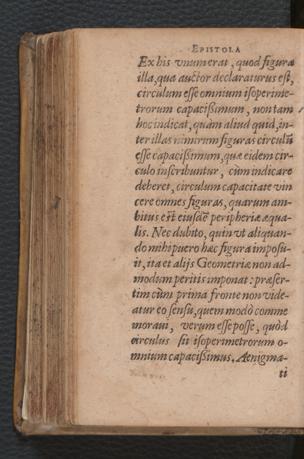 EPISTOLA
Ex his vnum erat, quod figura
illa, qua auctor declaraturus est,
circulum esse omnium isoperime-
trorum capacißimum, non tam
hoc indicat, quàm aliud quid, in-
ter illas nimirum figuras circulũ
esse capacißimum, quæ eidem cir-
culo inscribuntur, cùm indicare
deberet, circulum capacitate vin
cere omnes figuras, quarum am-
bitus eiusdẽ peripheriæ æqua-
lis. Nec dubito, quin vt aliquan-
do mihi puero hæc figura imposu-
it, ita et alijs Geometriæ non ad-
modum peritis imponat: præser-
tim cùm prima fronte non vide-
atur eo sensu, quem modò comme
moraui, verum esse posse, quòd
circulus sit isoperimetrorum o-
mnium capacißimus. Aenigma-
ti